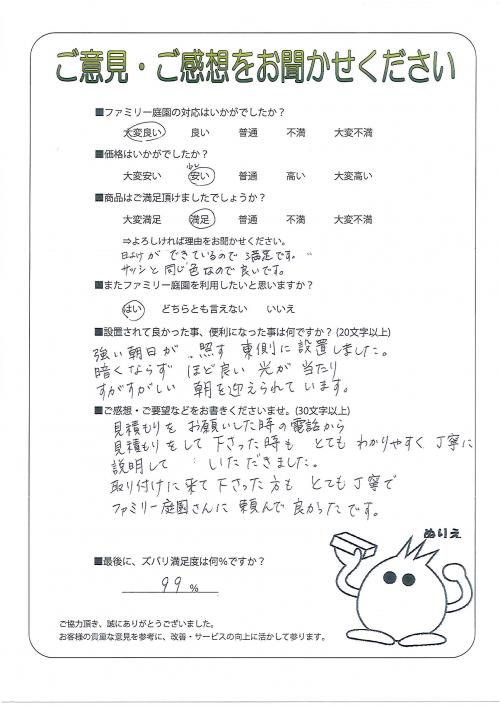 ご意見・ご感想をお聞かせください
■ファミリー庭園の対応はいかがでしたか?
大変良い 良い 普通 不満 大変不満
■価格はいかがでしたか?
少し
大変安い 安い 普通 高い 大変高い
■商品はご満足頂けましたでしょうか?
大変満足 満足 普通 不満 大変不満
⇒よろしければ理由をお聞かせください。
日よけが できているので 満足です。
サッシと 同じ色なので良いです。
■またファミリー庭園を利用したいと思いますか?
はい どちらとも言えない いいえ
■設置されて良かった事、便利になった事は何ですか? (20文字以上)
強い朝日が 照す 東側に設置しました。
暗くならず ほど良い 光が 当たり
すがすがしい 朝を迎えられています。
■ご感想・ご要望などをお書きくださいませ。(30文字以上)
見積もりを お願いした時の電話から
見積もりをして下さった時も とても わかりやすく 丁寧に
説明して いただきました。
取り付けに来て下さった方も とても丁寧で
ファミリー庭園さんに 頼んで良かったです。
ぬりえ
■最後に、ズバリ満足度は何%ですか?
99%
ご協力頂き、誠にありがとうございました。
お客様の貴重な意見を参考に、改善・サービスの向上に活かして参ります。